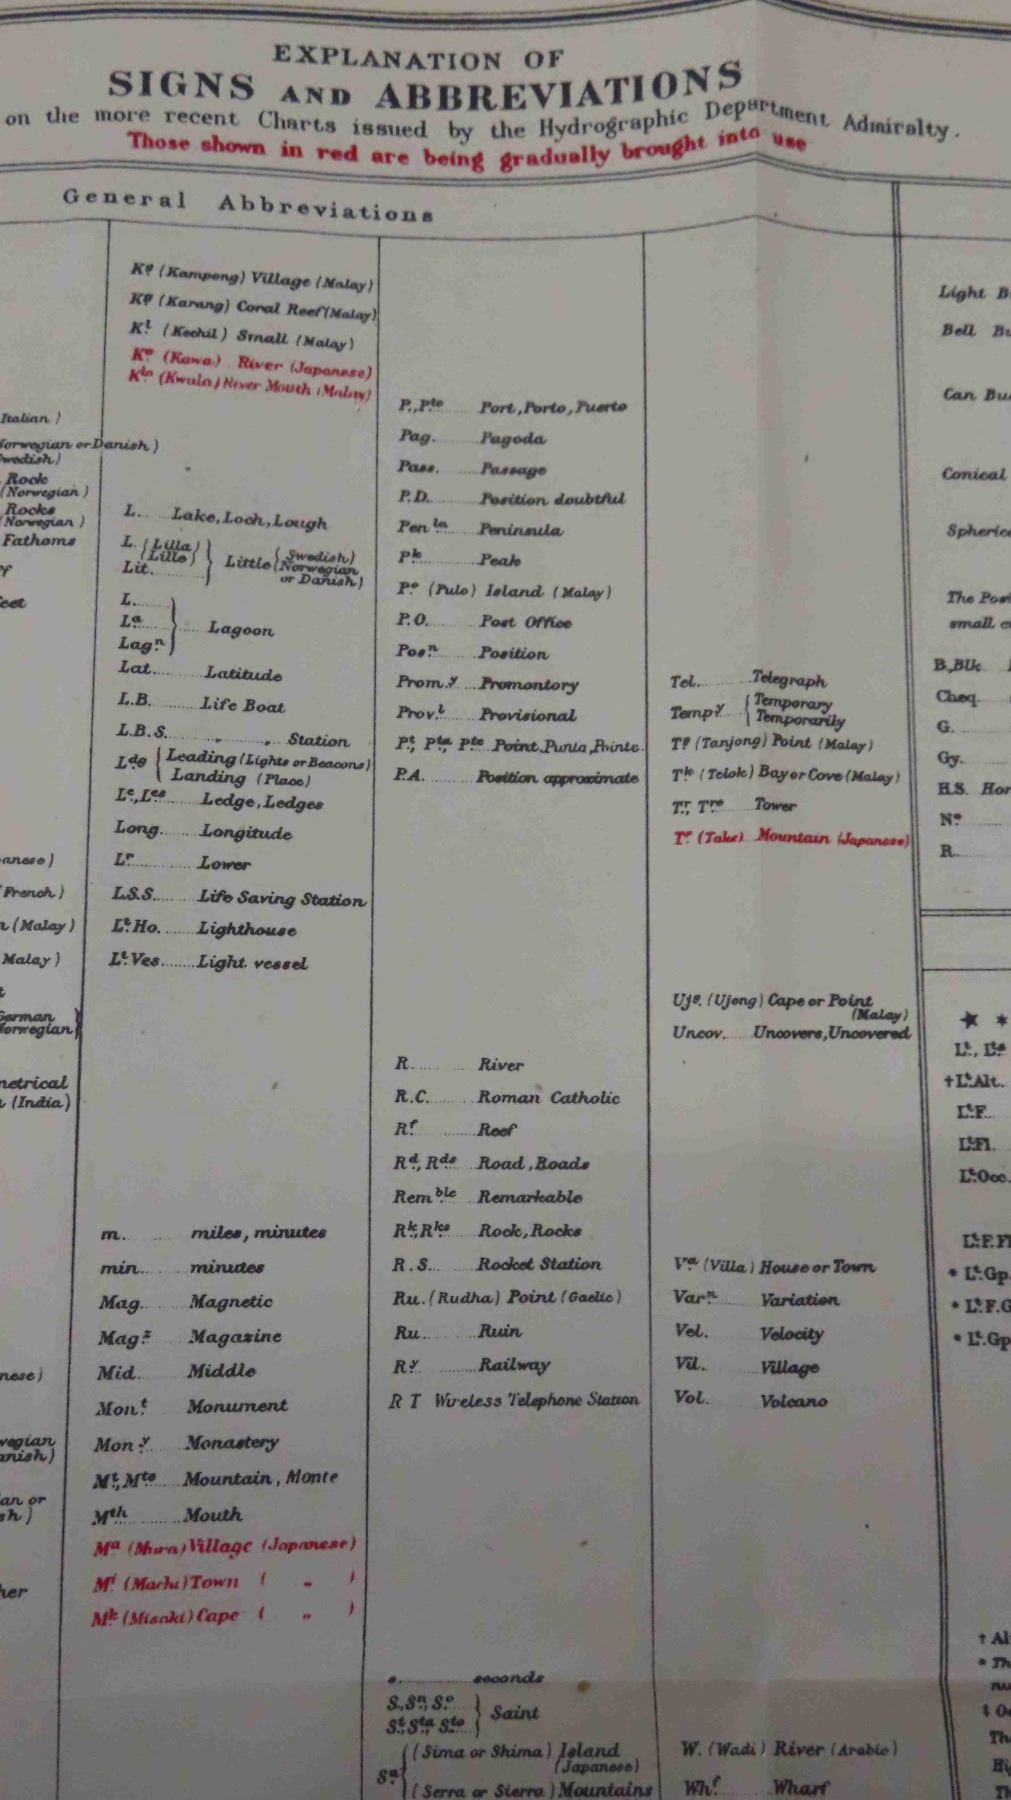 EXPLANATION OF
SIGNS AND ABBREVIATIONS
on the more recent Charts issued by the Hydrographic Department Admiralty.
Those shown in red are being gradually brought into use
General Abbreviations
Italian)
Norwegian or Danish)
Swedish)
Rock
(Norwegian)
Rocks
(Norwegian)
Fathoms
of
feet
French)
(Malay)
Malay)
German
Norwegian
(India)
Kg (Kampong) Village (Malay)
Kg (Karang) Coral Reef (Malay)
Kl (Kechil) Small (Malay)
Ka (Kawa) River (Japanese)
Kla (Kwala) River Mouth (Malay)
L. Lake, Loch, Lough
L. (Lilla) (Lille) Lit. Little (Swedish) (Norwegian or Danish)
L.
La
Lagn. Lagoon
Lat. Latitude
L.B. Life Boat
L.B.S. " " Station
Lds Leading (Lights or Beacons)
Landing (Place)
Le., Les Ledge, Ledges
Long. Longitude
Lr Lower
L.S.S. Life Saving Station
Lt. Ho. Lighthouse
Lt. Ves. Light vessel
m. miles, minutes
min. minutes
Mag. Magnetic
Magz. Magazine
Mid. Middle
Mont. Monument
Mony. Monastery
Mt., Mte Mountain, Monte
Mth Mouth
Ma (Mura) Village (Japanese)
Mi (Machi) Town ( " )
Mki (Misaki) Cape ( " )
P., Pto Port, Porto, Puerto
Pag. Pagoda
Pass. Passage
P.D. Position doubtful
Penla Peninsula
Pk Peak
Po (Pulo) Island (Malay)
P.O. Post Office
Posn. Position
Promy. Promontory
Provl. Provisional
Pt., Pta, Pte Point, Punta, Pointe
P.A. Position approximate
R. River
R.C. Roman Catholic
Rf. Reef
Rd., Rds. Road, Roads
Remble Remarkable
Rk., Rks Rock, Rocks
R.S. Rocket Station
Ru. (Rudha) Point (Gaelic)
Ru. Ruin
Ry. Railway
R T Wireless Telephone Station
s. seconds
S., Sn., So
St., Sta, Sto Saint
Sa. (Sima or Shima) Island (Japanese)
(Serra or Sierra) Mountains
Tel. Telegraph
Tempy. Temporary
Temporarily
Tg (Tanjong) Point (Malay)
Tk (Telok) Bay or Cove (Malay)
Tr., Tre Tower
Te. (Take) Mountain (Japanese)
Ujg. (Ujong) Cape or Point (Malay)
Uncov. Uncovers, Uncovered
Va (Villa) House or Town
Varn. Variation
Vel. Velocity
Vil. Village
Vol. Volcano
W. (Wadi) River (Arabic)
Whf. Wharf
Light
Bell
Can
Conical
The
small
B., Blk
Cheq.
G.
Gy.
H.S.
No
R.
Lt., Lts
†Lt. Alt.
Lt. F.
Lt. Fl.
Lt. Occ.
* Lt. Gp.